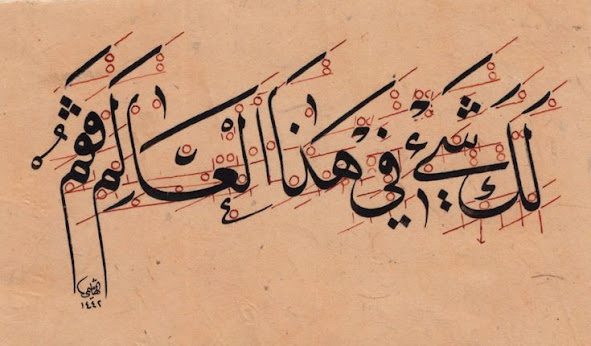 لك شيء في هذا العالم فقم
١٤٤٢